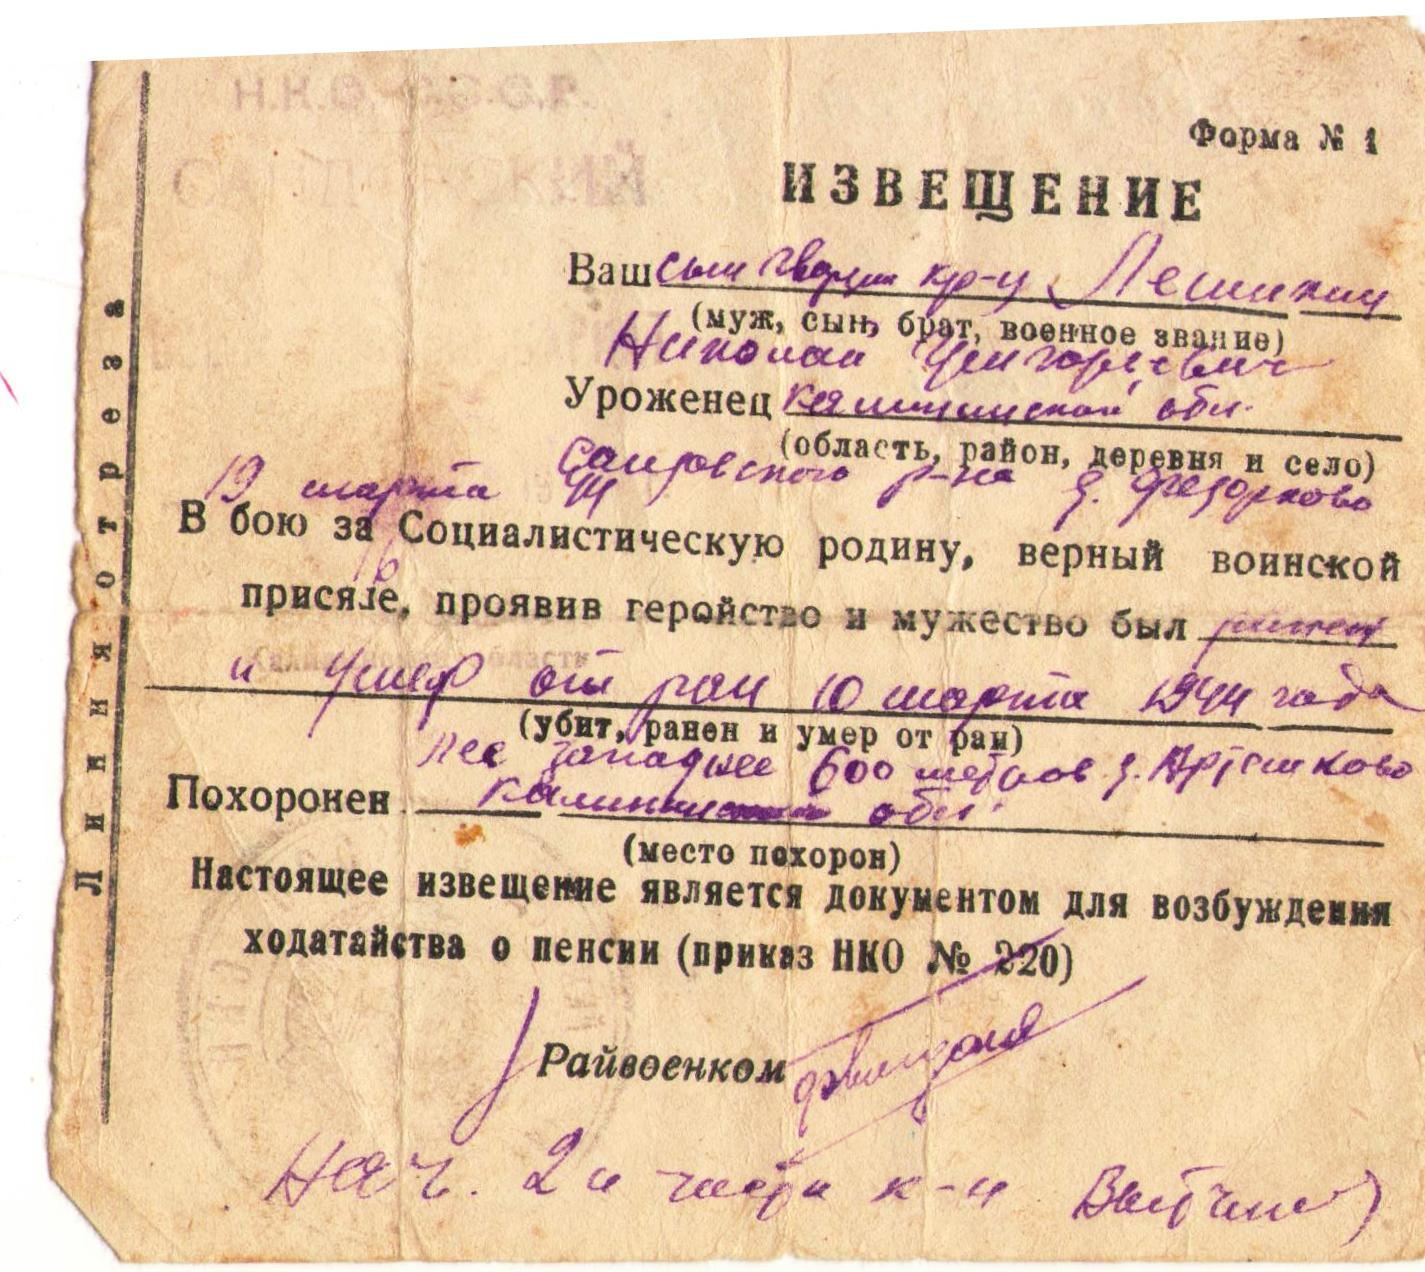 Н.К.О. С.С.С.Р.
Форма № 1
САНДОВСКИЙ
ИЗВЕЩЕНИЕ
Ваш сын гвардии кр-ц Лешикин
(муж, сын, брат, военное звание)
Николай Григорьевич
Уроженец Калининской обл.
(область, район, деревня и село)
Сандовского р-на д. Федорково
19 марта 44
В бою за Социалистическую родину, верный воинской
присяге, проявив геройство и мужество был ранен
Калининской области
и умер от ран 10 марта 1944 года
(убит, ранен и умер от ран)
Лес западнее 600 метров д.
Похоронен Калининской обл.
(место похорон)
Настоящее извещение является документом для возбуждения
ходатайства о пенсии (приказ НКО № 220)
Райвоенком
Нач. 2 й части к-н
Линия отреза